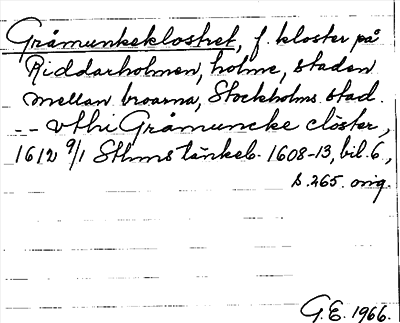 Gråmunkeklostret, f. kloster på
Riddarholmen, holme, staden
mellan broarna, Stockholms stad.
-- vthi Gråmuncke clöster,
1612 9/1 Sthms tänkeb. 1608-13, bil. 6,
s. 265. orig.
G.E. 1966.